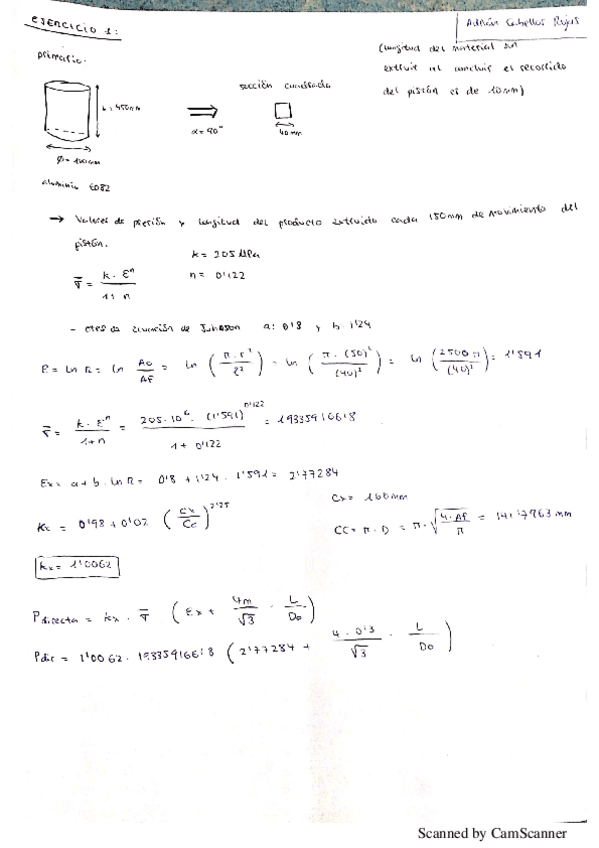 EJERCICIO 1:
Adrián Ceballos Rojas
primario.
(longitud del material sin
extruir al concluir el recorrido
del pistón es de 10mm)
L = 450mm
sección cuadrada
α = 90°
40mm
Ø = 100mm
aluminio 6082
→ Valores de presión y longitud del producto extruido cada 150mm de movimiento del
pistón.
k = 205 MPa
n = 0'122
σ̅ = k · Ɛⁿ / 1 + n
- ctes de ecuación de Johnson a: 0'8 y b: 1'24
Ɛ = ln R = ln Ao/AF = ln (π · r² / l²) = ln (π · (50)² / (40)²) = ln (2500 π / (40)²) = 1'591
σ̅ = k · Ɛⁿ / 1+n = 205 · 10⁶ · (1'591)^0'122 / 1 + 0'122 = 193359166'8
Ex = a + b · ln R = 0'8 + 1'24 · 1'591 = 2'77284
Kx = 0'98 + 0'02 (Cx / Cc)^2'25
Cx = 160mm
CC = π · D = π · √(4 · AF / π) = 141'7963 mm
kx = 1'0062
Pdirecta = kx · σ̅ (Ex + 4m/√3 · L/Do)
Pdir = 1'0062 · 193359166'8 (2'77284 + 4 · 0'3/√3 · L/Do)
Scanned by CamScanner